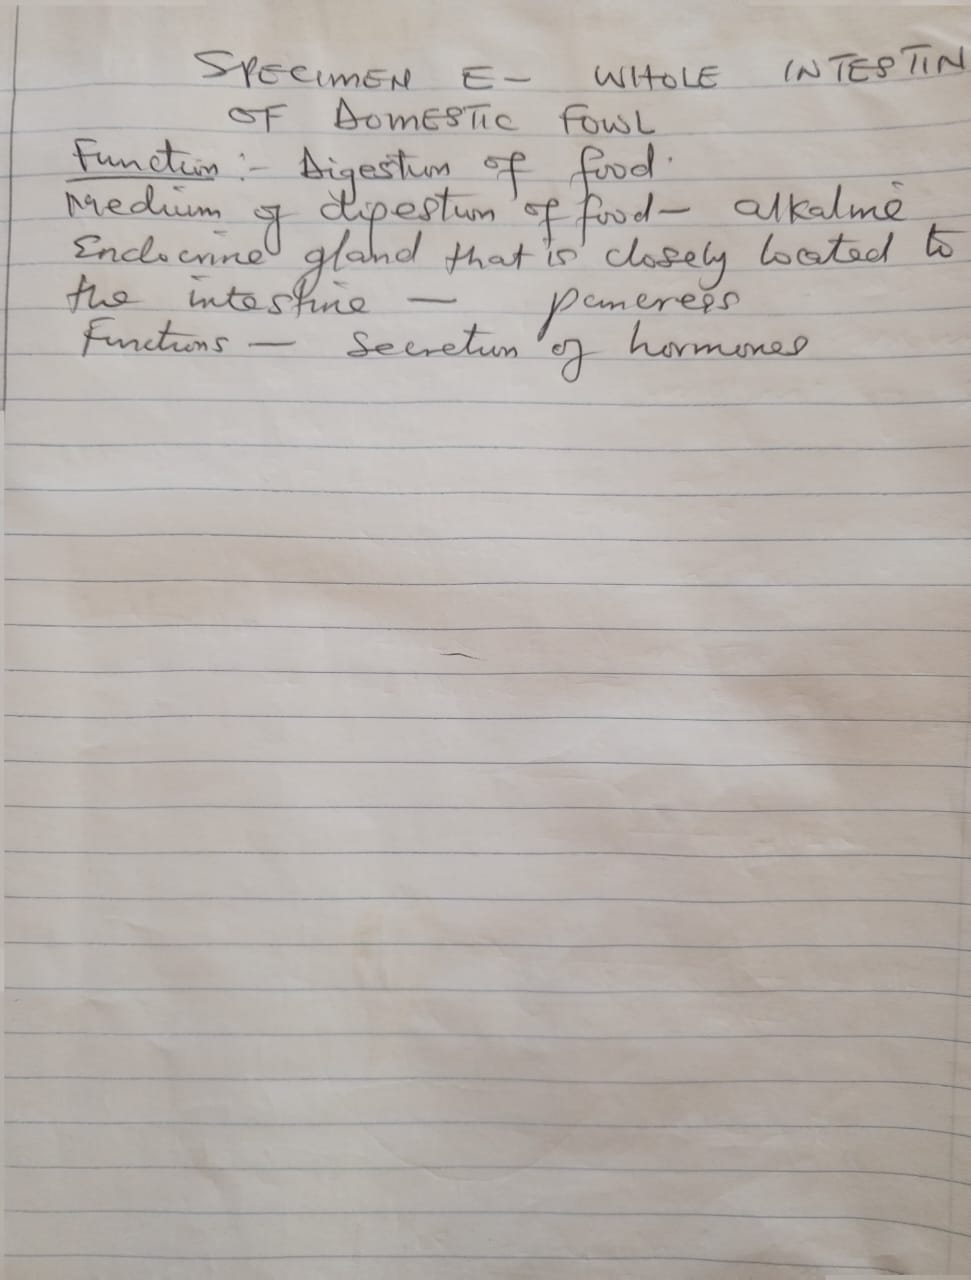 SPECIMEN E- WHOLE INTESTIN
OF DOMESTIC FOWL
Function :- Digestion of food.
Medium of digestion of food- alkaline
Endocrine gland that is closely located to
the intestine — pancreas
Functions — Secretion of hormones